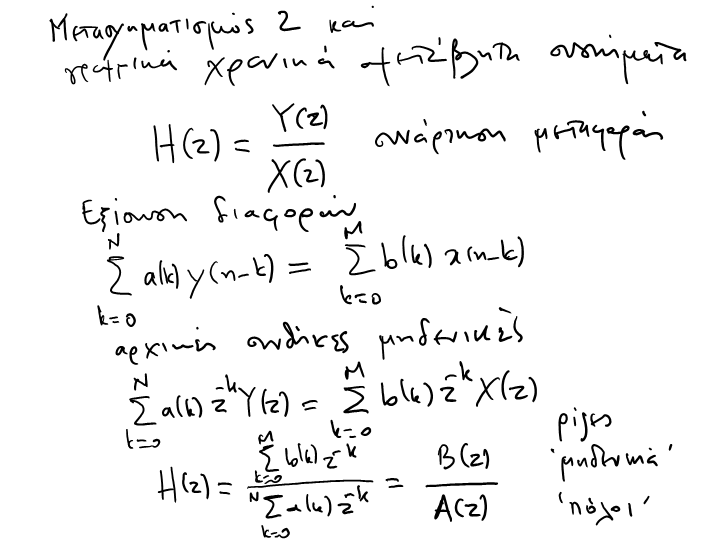 Μετασχηματισμός z και
γραμμικά χρονικά αμετάβλητα συστήματα
H(z) = Y(z) / X(z) συνάρτηση μεταφοράς
Εξίσωση διαφορών
∑_{k=0}^{N} a(k) y(n-k) = ∑_{k=0}^{M} b(k) x(n-k)
αρχικές συνθήκες μηδενικές
∑_{k=0}^{N} a(k) z^{-k} Y(z) = ∑_{k=0}^{M} b(k) z^{-k} X(z)
H(z) = ∑_{k=0}^{M} b(k) z^{-k} / ∑_{k=0}^{N} a(k) z^{-k} = B(z) / A(z)
ρίζες
'μηδενικά'
'πόλοι'